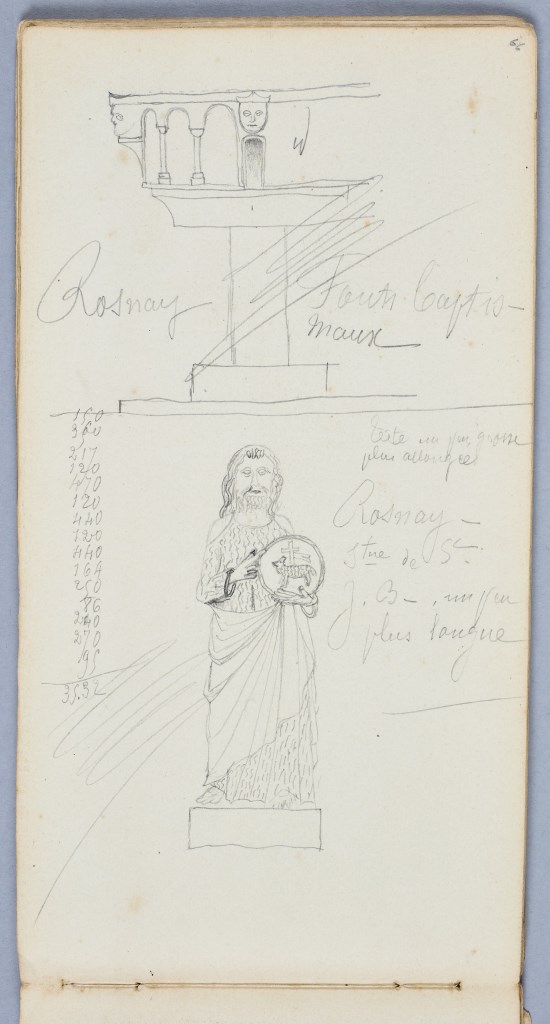 Rosnay
Fonts baptis-
maux
150
360
217
120
470
120
440
120
440
164
250
86
240
270
195
3532
tête un peu grosse
plus allongée
Rosnay -
Stue de St
J. B - . un peu
plus longue